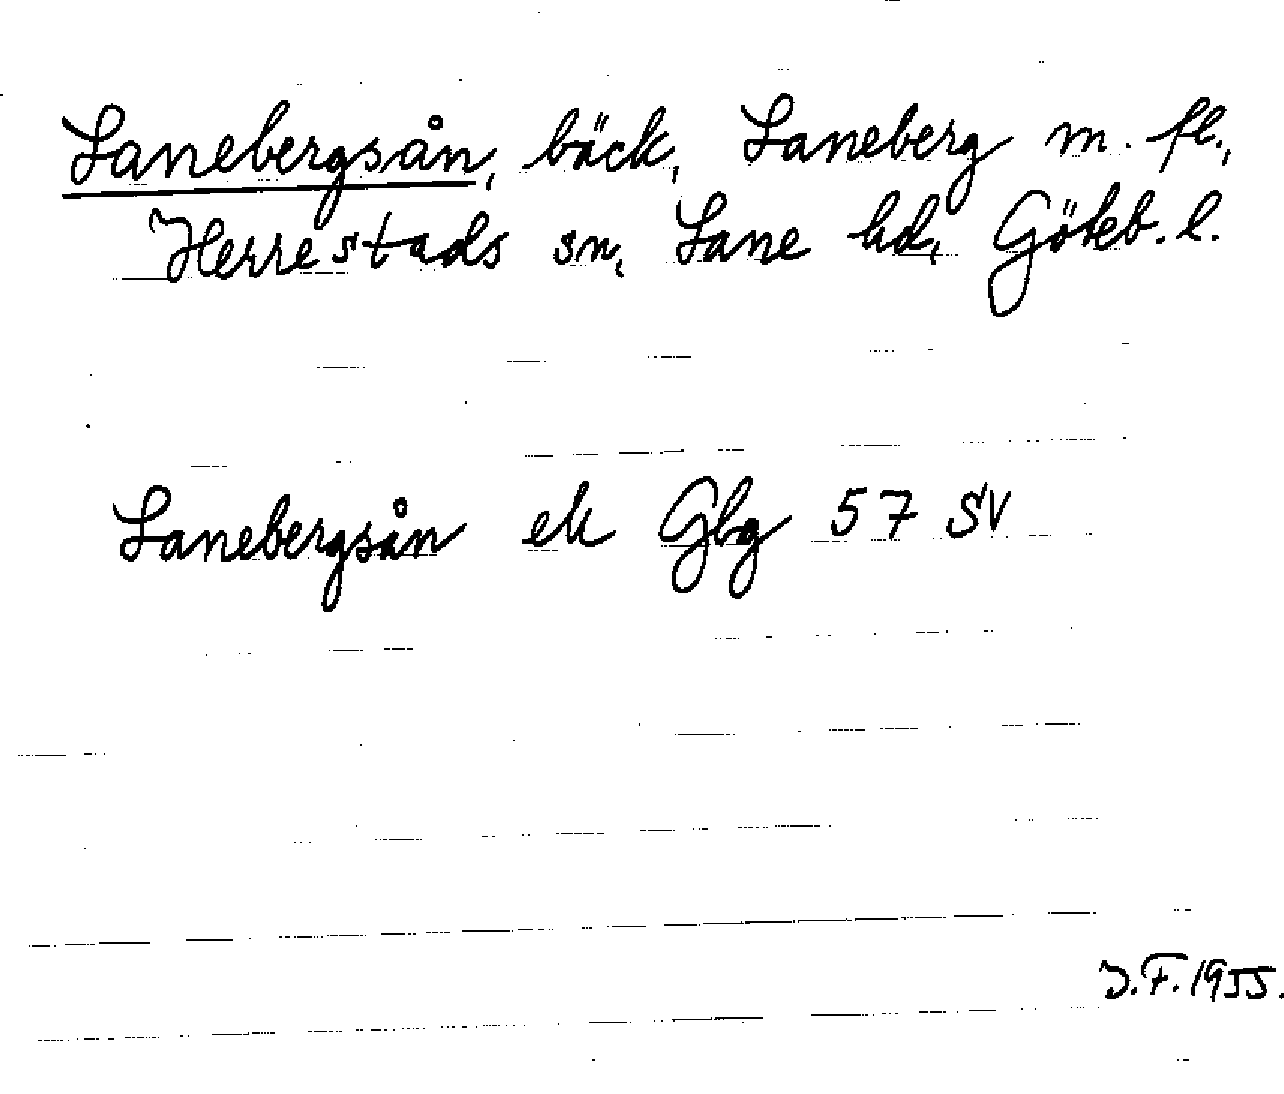 Lanebergsån, bäck, Laneberg m. fl.,
Herrestads sn, Lane hd, Göteb. l.
Lanebergsån ek Gbg 57 SV
J.F. 1955.